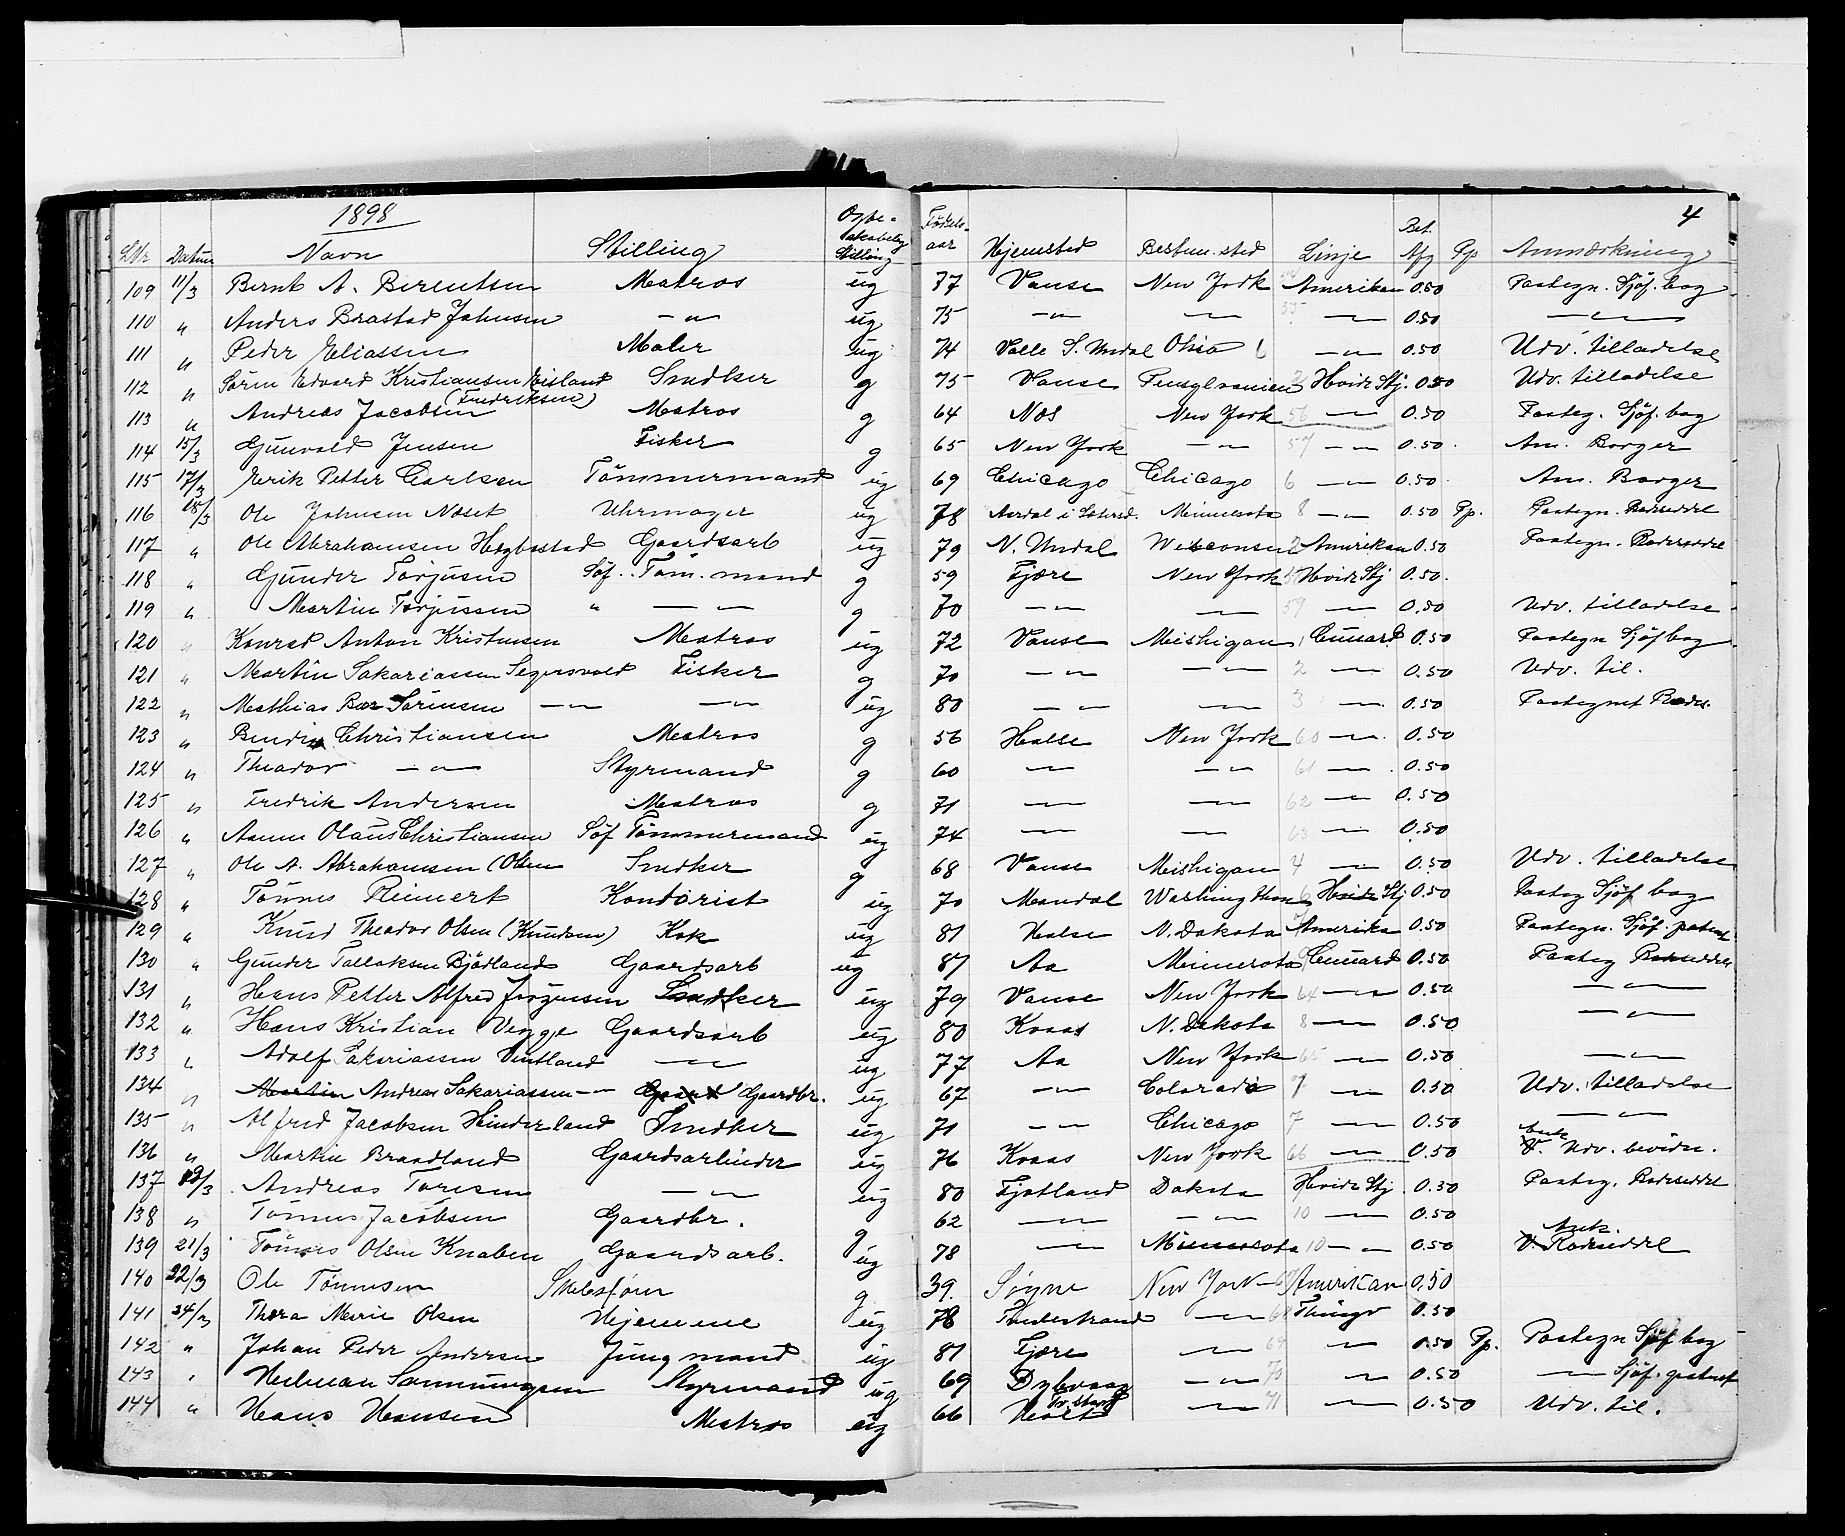 1898 4
LNr Datum Navn Stilling Stilling Fødselsaar Hjemsted Bestem. sted Linje Bet. Afg Pp Anmærkning
109 11/3 Bernt A. Berentsen Matros ug 77 Vanse New York Amerikan 0.50 Paategn. Sjöf. bog
110 " Anders Brastad Johnsen —"— ug 75 —"— —"— 55 —"— 0.50 —"—
111 " Peder Eliassen Maler ug 74 Valle S. Undal Ohio 6 —"— 0.50 Udv. tilladelse
112 " Sören Edvard Kristiansen Eisland Snedker g 75 Vanse Pensylvanien Hvide Stj. 0.50 Udv. tilladelse
113 " Andreas Jacobsen (Fredriksen) Matros g 64 Næs New York 56 —"— 0.50 Paateg. Sjöf. bog
114 15/3 Gunvald Jensen Fisker g 65 New York —"— 57 —"— 0.50 Am. Borger
115 17/3 Erik Petter Carlsen Tömmermand ug 69 Chicago Chicago 6 —"— 0.50 Am. Borger
116 18/3 Ole Johnsen Næset Uhrmager ug 78 Aardal i Sætersd. Minnesota 8 —"— 0.50 Pp. Paategn. Rulleseddel
117 " Ole Abrahamsen Hægbostad Gaardsarb ug 79 N. Undal Wisconsin 2 Amerikan 0.50 Paategn.
118 " Gunder Torjusen Söf. Töm. mand g 59 Fjære New York Hvide Stj 0.50
119 " Martin Torjussen " —"— g 70 —"— —"— 59 —"— 0.50 Udv. tilladelse
120 " Konrad Anton Kristensen Matros ug 72 Vanse Mishigan 1 Cunard 0.50 Paategn Sjöf bog
121 " Martin Sakariassen Segersvold Fisker g 70 —"— —"— 2 —"— 0.50 Udv. til.
122 " Mathias Bar Sörensen —"— —"— ug 80 —"— —"— 3 —"— 0.50 Paategnet
123 " Bendix Christiansen Matros g 56 Halse New York 60 —"— 0.50
124 " Theodor —"— Styrmand g 60 —"— —"— 61 —"— 0.50
125 " Fredrik Andersen Matros g 71 —"— —"— 62 —"— 0.50
126 " Aanen Olaus Christiansen Söf Tömmermand ug 74 —"— —"— 63 —"— 0.50
127 " Ole A. Abrahamsen (Olsen Snedker g 68 Vanse Mishigan 4 —"— 0.50 Udv. tilladelse
128 " Tönnes Reinert Kontorist ug 70 Mandal Washington 6 Hvide Stj 0.50 Paateg Sjöf bog
129 " Knud Theodor Olsen (Knudsen) Kok ug 81 Halse N. Dakota 7 Amerika 0.50 Paategn. Sjöf. patent
130 " Gunder Tallaksen Bjödland Gaardsarb ug 87 Aa Minnesota 9 Cunard 0.50 Paateg
131 " Hans Petter Alfred Jörgensen Snedker ug 79 Vanse New York 64 —"— 0.50 —"—
132 " Hans Kristian Vegge Gaardsarb ug 80 Kvaas N. Dakota 8 —"— 0.50 —"—
133 " Adolf Sakariassen Vintland —"— ug 77 Aa New York 65 —"— 0.50 —"—
134 " Martin Andreas Sakariassen —"— Gaard Gaardbr. ug 67 —"— Colorado 7 —"— 0.50 Udv. tilladelse
135 " Alfred Jacobsen Hinderland Snedker ug 71 —"— Chicago 7 —"— 0.50 —"—
136 " Martin Braadland Gaardsarbeider ug 76 Kvaas New York 66 —"— 0.50 Udv. bevidn.
137 19/3 Andreas Toresen —"— ug 80 Fjotland Dakota Hvide Stj 0.50 Paateg.
138 " Tönnes Jacobsen Gaardbr. g 62 —"— —"— 10 —"— 0.50
139 21/3 Tönnes Olsen Knaben Gaardsarb. ug 78 —"— Minnesota 10 —"— 0.50
140 22/3 Ole Tönnesen Skibsförer g 39. Søgne New York Amerikan 0.50
141 24/3 Thora Marie Olsen Hjemme ug 78 Tvedestrand —"— Thingv 0.50
142 " Johan Peder Andersen Jungmand ug 81 Fjære —"— 69 —"— 0.50 Pp. Paategn Sjöf bog
143 " Styrmand ug 69 Dybvaag —"— 70 —"— 0.50 —"— Sjöf.
144 " Hans Hansen Matros ug 66 Holt Tv. strand —"— 71 —"— 0.50 Udv. til.